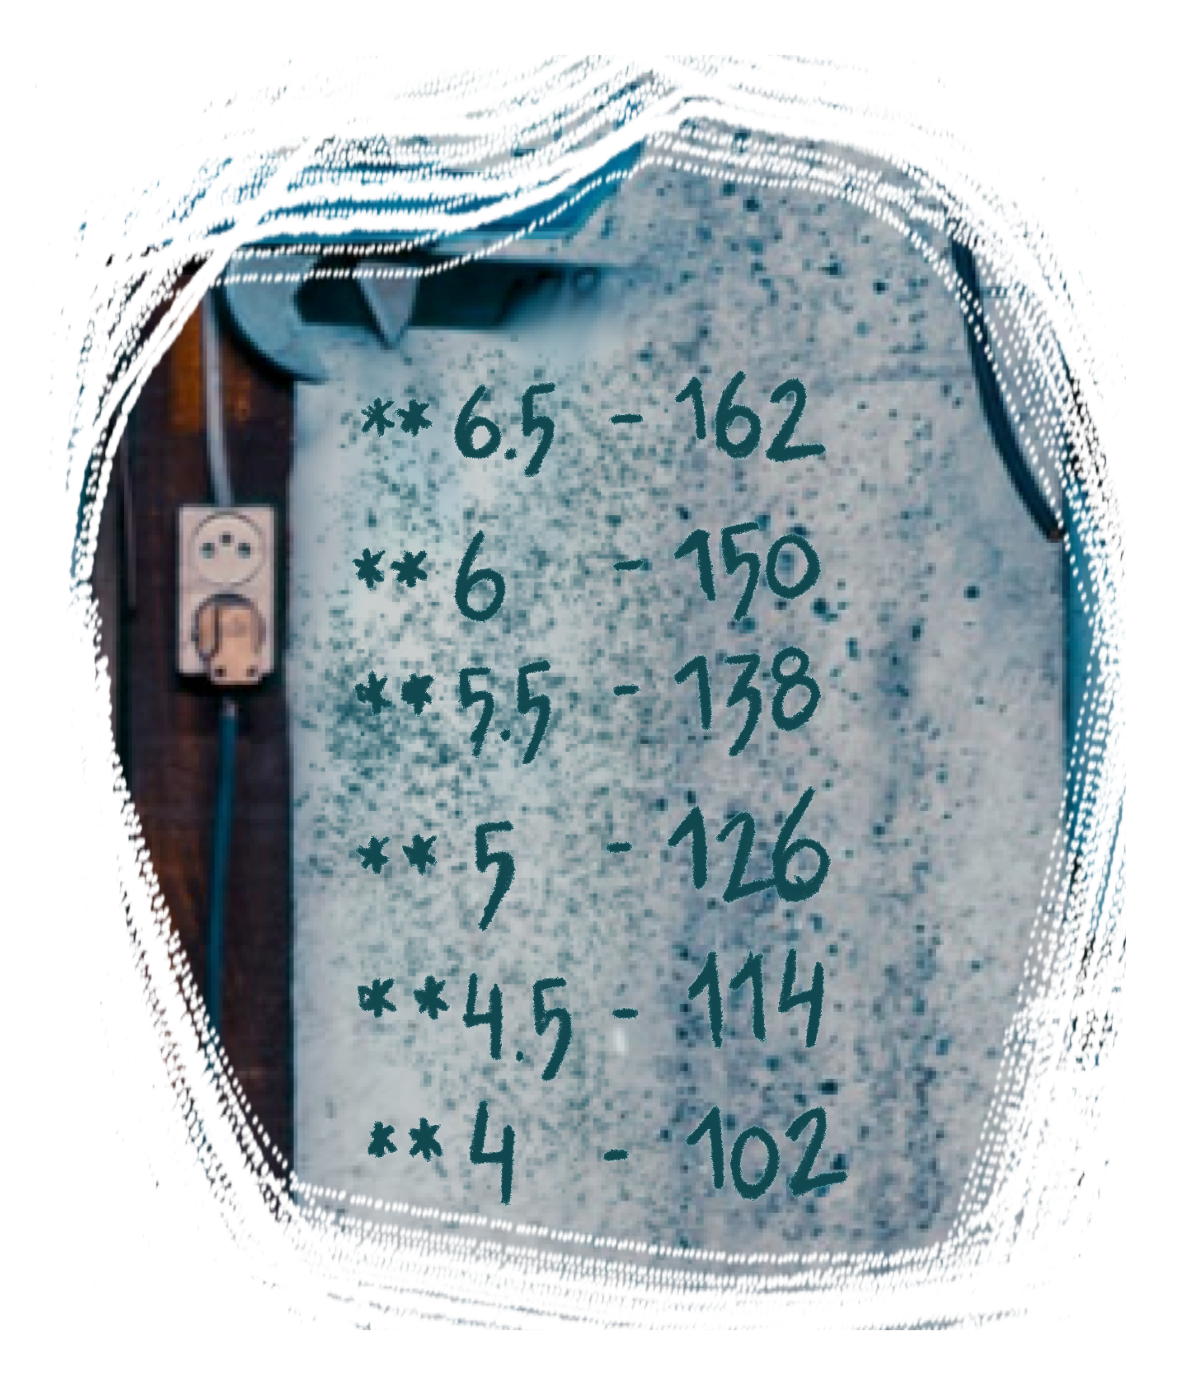 **6.5 - 162
**6 - 150
**5.5 - 138
**5 - 126
**4.5 - 114
**4 - 102